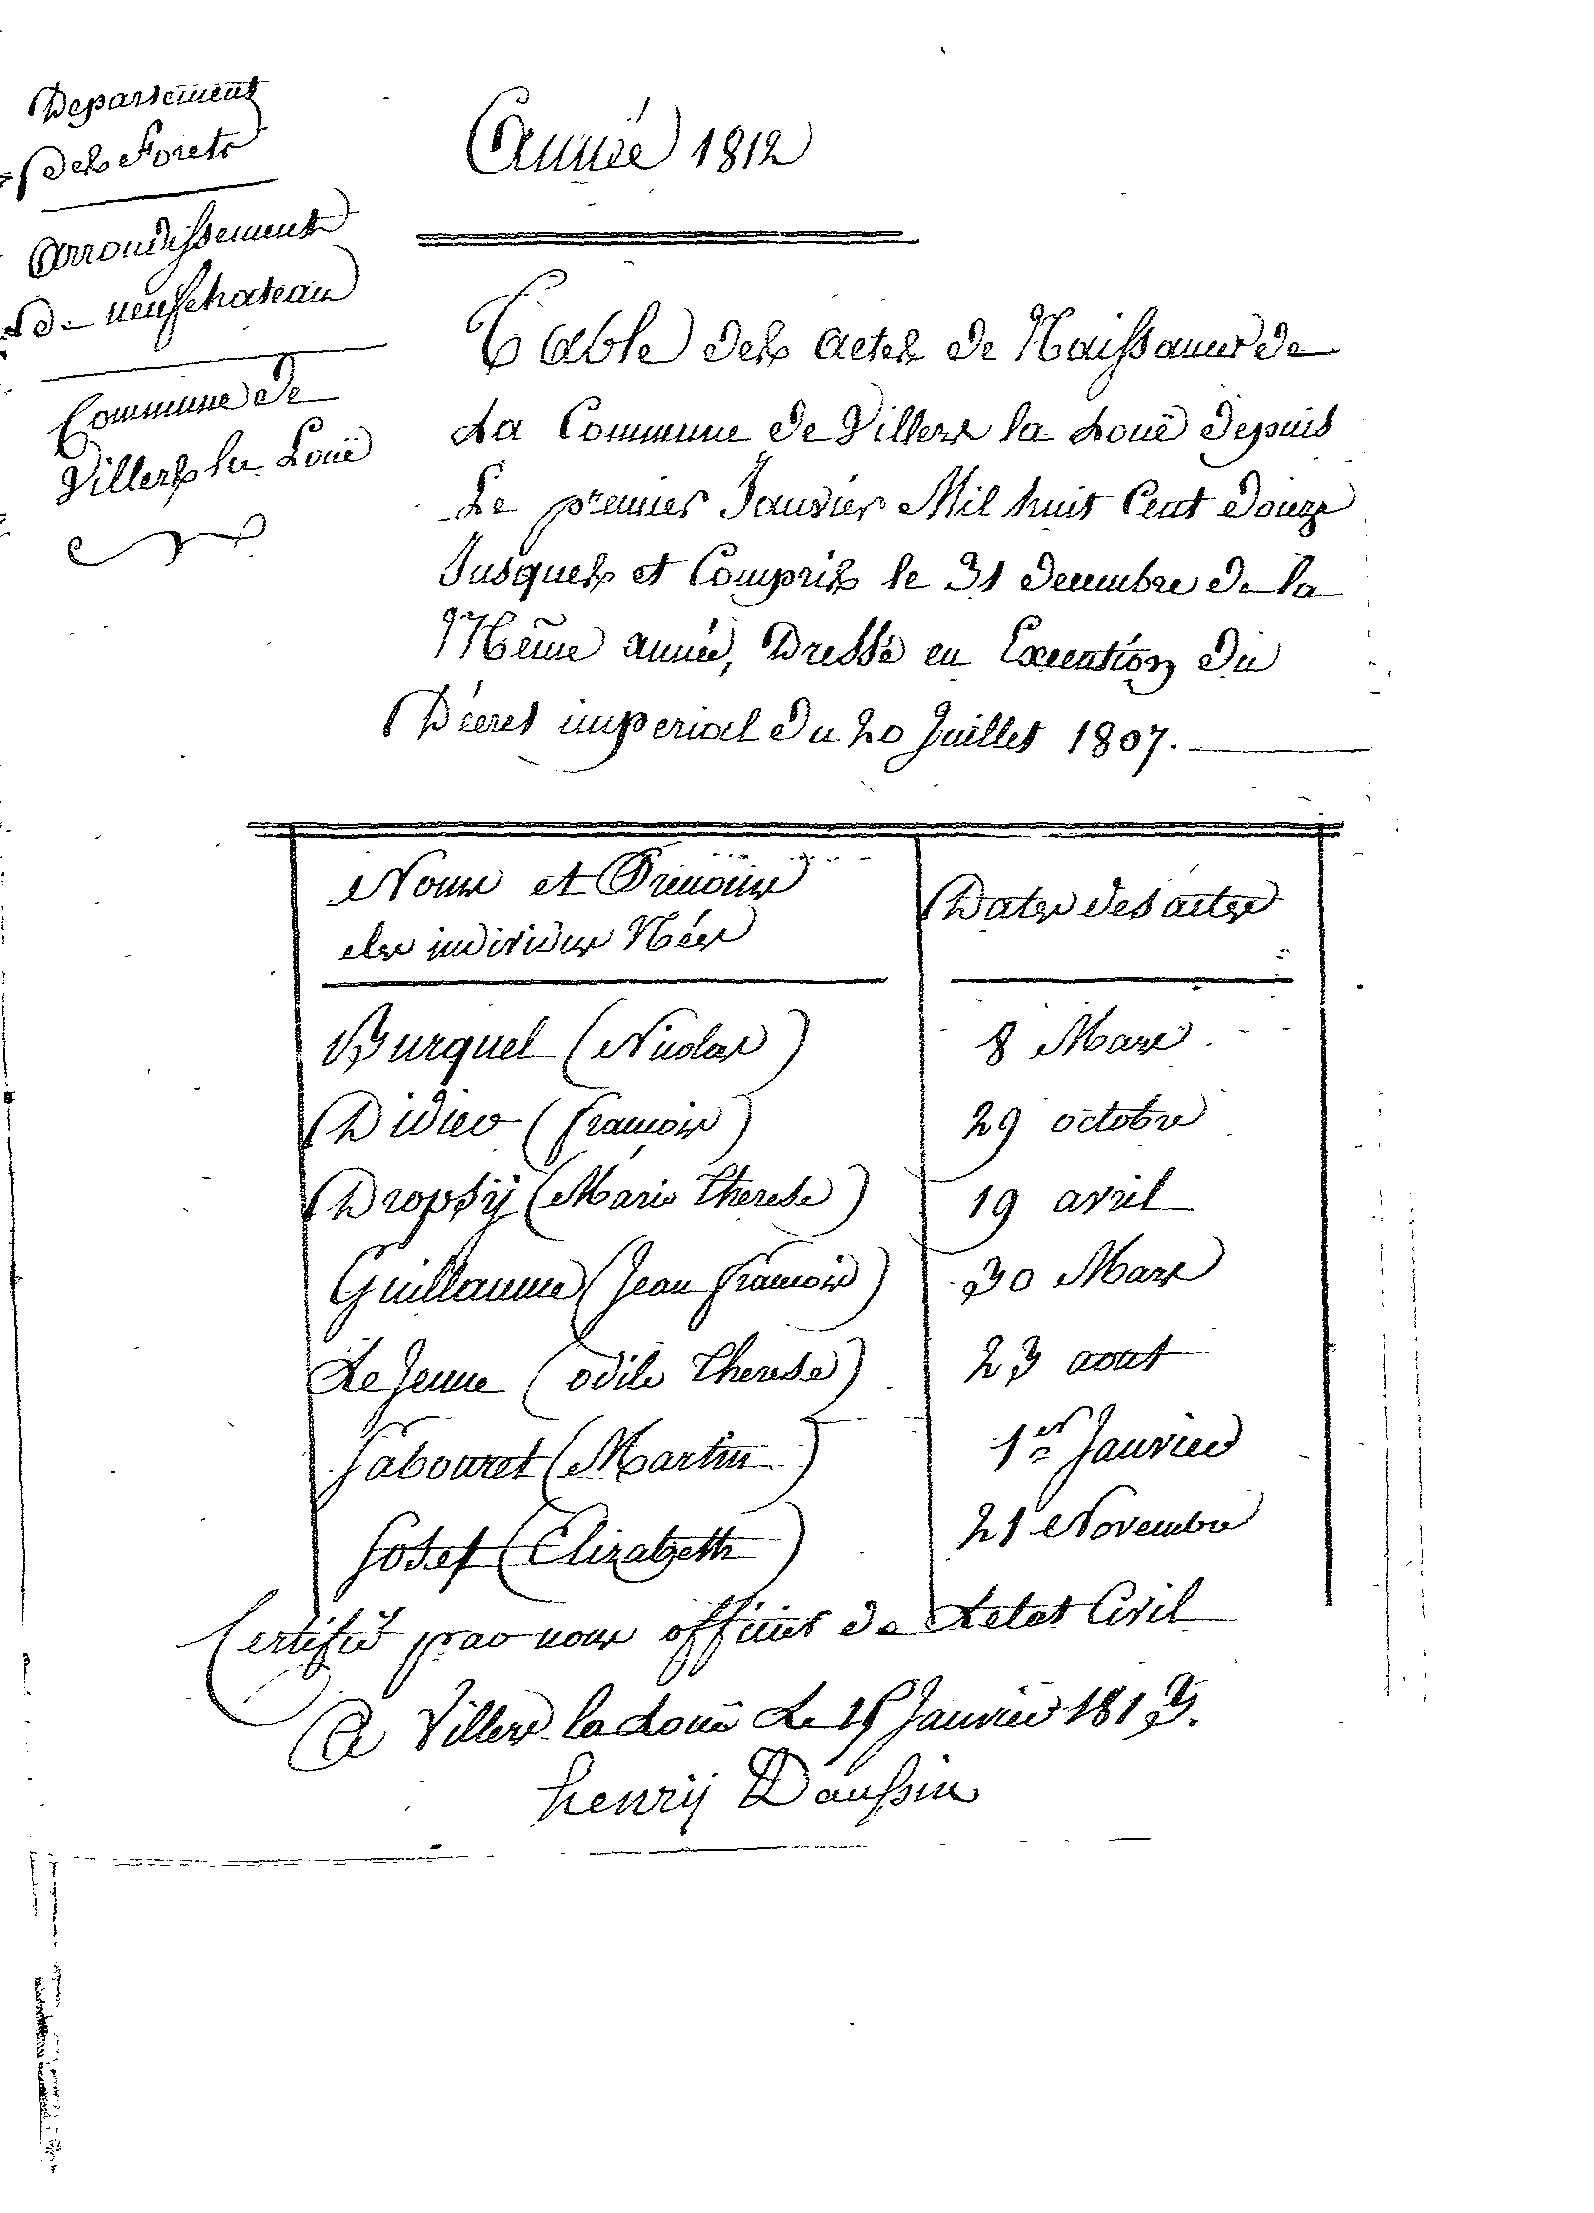 Departement
des Forets
Arrondissement
de neufchateau
Commune de
Villers la Louë
Année 1812
Table des actes de Naissances de
La Commune de Villers la Louë depuis
Le premier Janvier Mil huit Cent douze
Jusques et Compris le 31 decembre de la
Même année, Dressé en Execution du
Décret imperial du 20 Juillet 1807.
Noms et Prénoms
des individus Nées
Dates des actes
Burquel (Nicolas) 8 Mars
Didier (françois) 29 octobre
Dropsÿ (Marie therese) 19 avril
Guillaume (Jean françois) 30 Mars
Le Jeune (odile therese) 23 aout
Jabouret (Martin) 1er Janvier
Josef (Elizabeth) 21 Novembre
Certifié par nous officier de Letat Civil
A Villers la Louë Le 15 Janvier 1813.
henrÿ Daussin